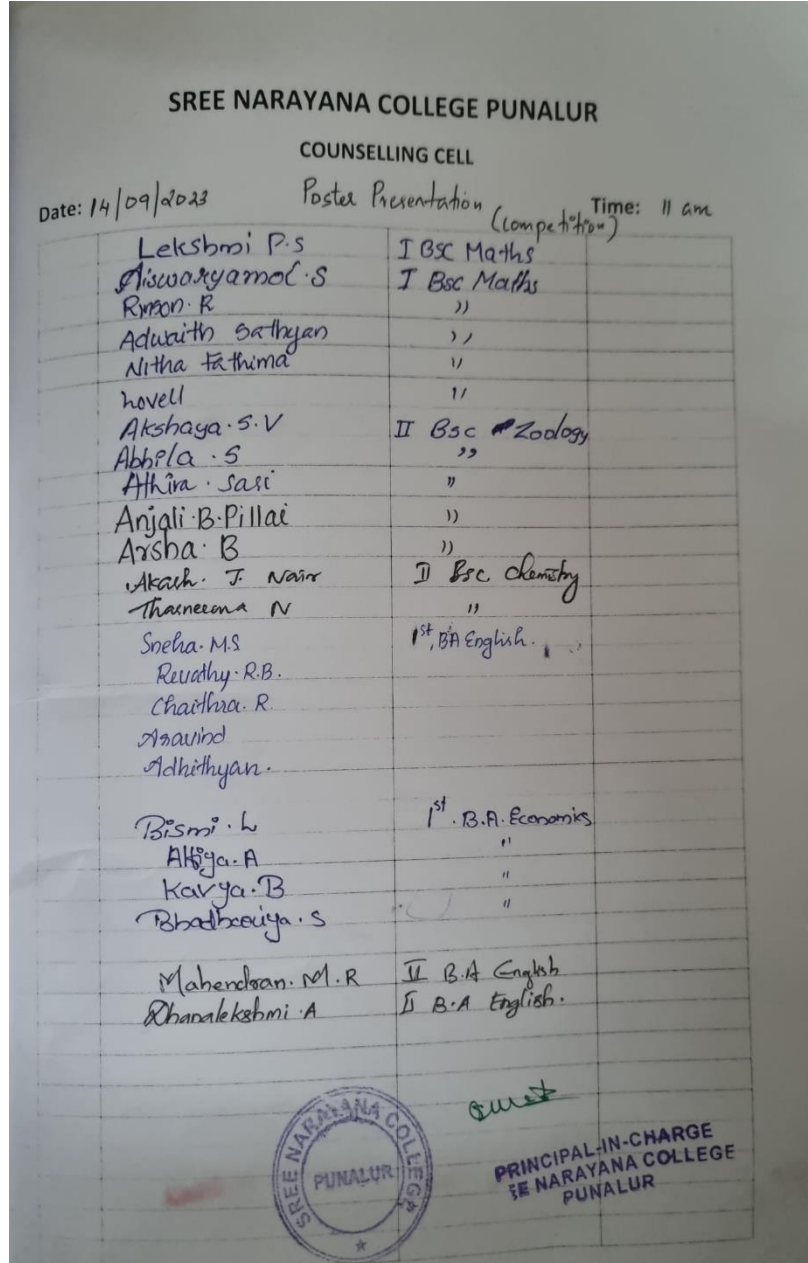 SREE NARAYANA COLLEGE PUNALUR
COUNSELLING CELL
Date: 14/09/2023 Poster Presentation (competition) Time: 11 am
Lekshmi P.S I BSC Maths
Aiswaryamol.S I Bsc Maths
Rinson. R "
Adwaith Sathyan "
Nitha Fathima "
Lovell "
Akshaya.S.V II Bsc Zoology
Abhila.S "
Athira. Sasi "
Anjali.B.Pillai "
Arsha. B "
Akash. J. Nair II Bsc chemistry
N "
Sneha. M.S 1st, BA English.
Revathy. R.B.
Chaithra. R.
Aravind
Adhithyan.
Bismi. L 1st. B.A. Economics
A "
Kavya. B "
S "
Mahendran. M.R II B.A English
Dhanalekshmi.A II B.A English.
SREE NARAYANA COLLEGE
PUNALUR
PRINCIPAL-IN-CHARGE
EE NARAYANA COLLEGE
PUNALUR